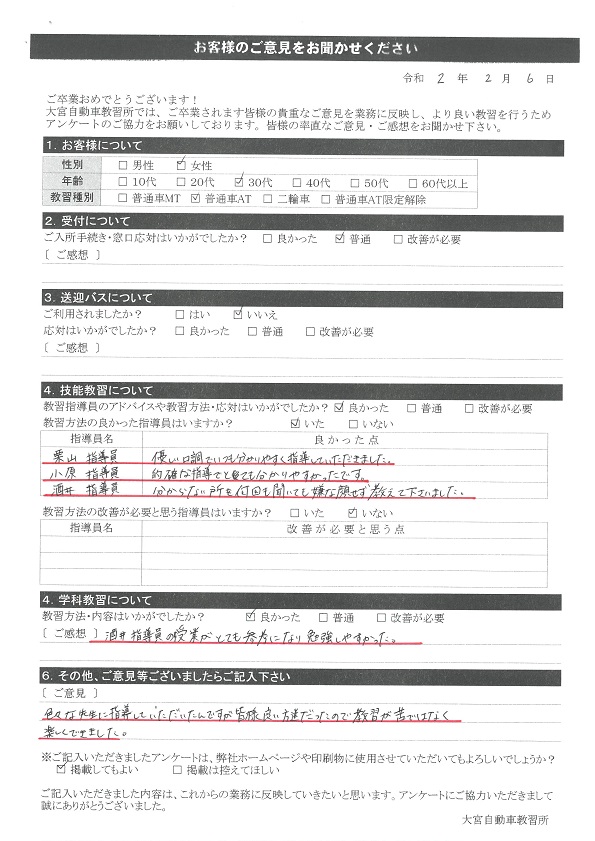 お客様のご意見をお聞かせください
令和 2 年 2 月 6 日
ご卒業おめでとうございます！
大宮自動車教習所では、ご卒業されます皆様の貴重なご意見を業務に反映し、より良い教習を行うため
アンケートのご協力をお願いしております。皆様の率直なご意見・ご感想をお聞かせ下さい。
1. お客様について
性別 □ 男性 ☑ 女性
年齢 □ 10代 □ 20代 ☑ 30代 □ 40代 □ 50代 □ 60代以上
教習種別 □ 普通車MT ☑ 普通車AT □ 二輪車 □ 普通車AT限定解除
2. 受付について
ご入所手続き・窓口応対はいかがでしたか？ □ 良かった ☑ 普通 □ 改善が必要
〔 ご感想 〕
3. 送迎バスについて
ご利用されましたか？ □ はい ☑ いいえ
応対はいかがでしたか？ □ 良かった □ 普通 □ 改善が必要
〔 ご感想 〕
4. 技能教習について
教習指導員のアドバイスや教習方法・応対はいかがでしたか？ ☑ 良かった □ 普通 □ 改善が必要
教習方法の良かった指導員はいますか？ ☑ いた □ いない
指導員名 良かった点
栗山 指導員 優しい口調でいつも分かりやすく指導していただきました。
小原 指導員 的確な指導でとても分かりやすかったです。
酒井 指導員 分からない所も何回も聞いても嫌な顔せず教えて下さいました。
教習方法の改善が必要と思う指導員はいますか？ □ いた ☑ いない
指導員名 改善が必要と思う点
4. 学科教習について
教習方法・内容はいかがでしたか？ ☑ 良かった □ 普通 □ 改善が必要
〔 ご感想 〕 酒井指導員の授業がとても参考になり勉強しやすかった。
6. その他、ご意見等ございましたらご記入下さい
〔 ご意見 〕
色々な先生に指導していただいたんですが皆様良い方達だったので教習が苦ではなく
楽しくできました。
※ご記入いただきましたアンケートは、弊社ホームページや印刷物に使用させていただいてもよろしいでしょうか？
☑ 掲載してもよい □ 掲載は控えてほしい
ご記入いただきました内容は、これからの業務に反映していきたいと思います。アンケートにご協力いただきまして
誠にありがとうございました。
大宮自動車教習所